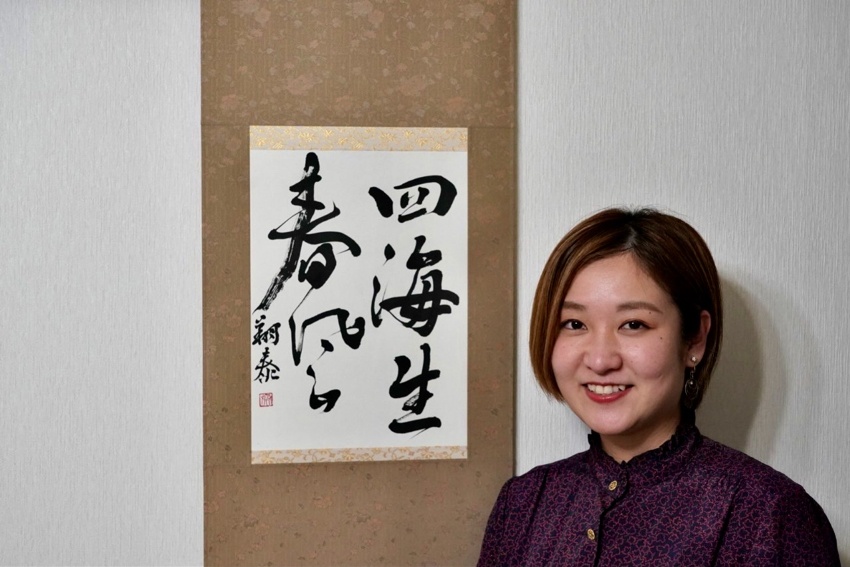 四海生
春風
翔泰